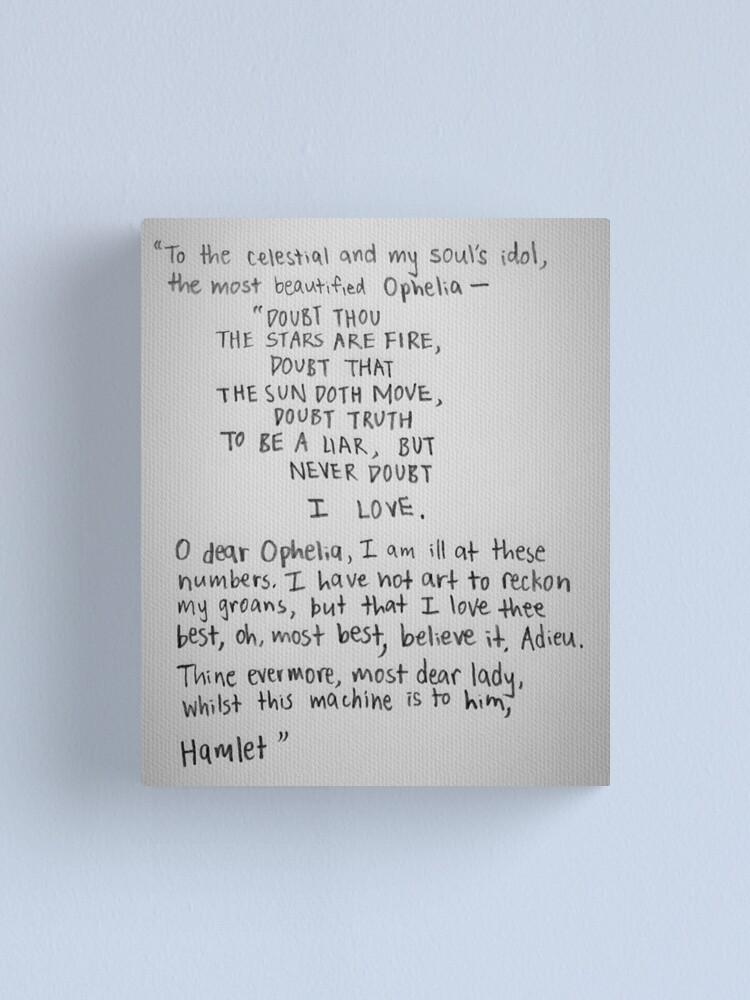 “To the celestial and my soul's idol,
the most beautified Ophelia —
“DOUBT THOU
THE STARS ARE FIRE,
DOUBT THAT
THE SUN DOTH MOVE,
DOUBT TRUTH
TO BE A LIAR, BUT
NEVER DOUBT
I LOVE.
O dear Ophelia, I am ill at these
numbers. I have not art to reckon
my groans, but that I love thee
best, oh, most best, believe it. Adieu.
Thine evermore, most dear lady,
whilst this machine is to him,
Hamlet”